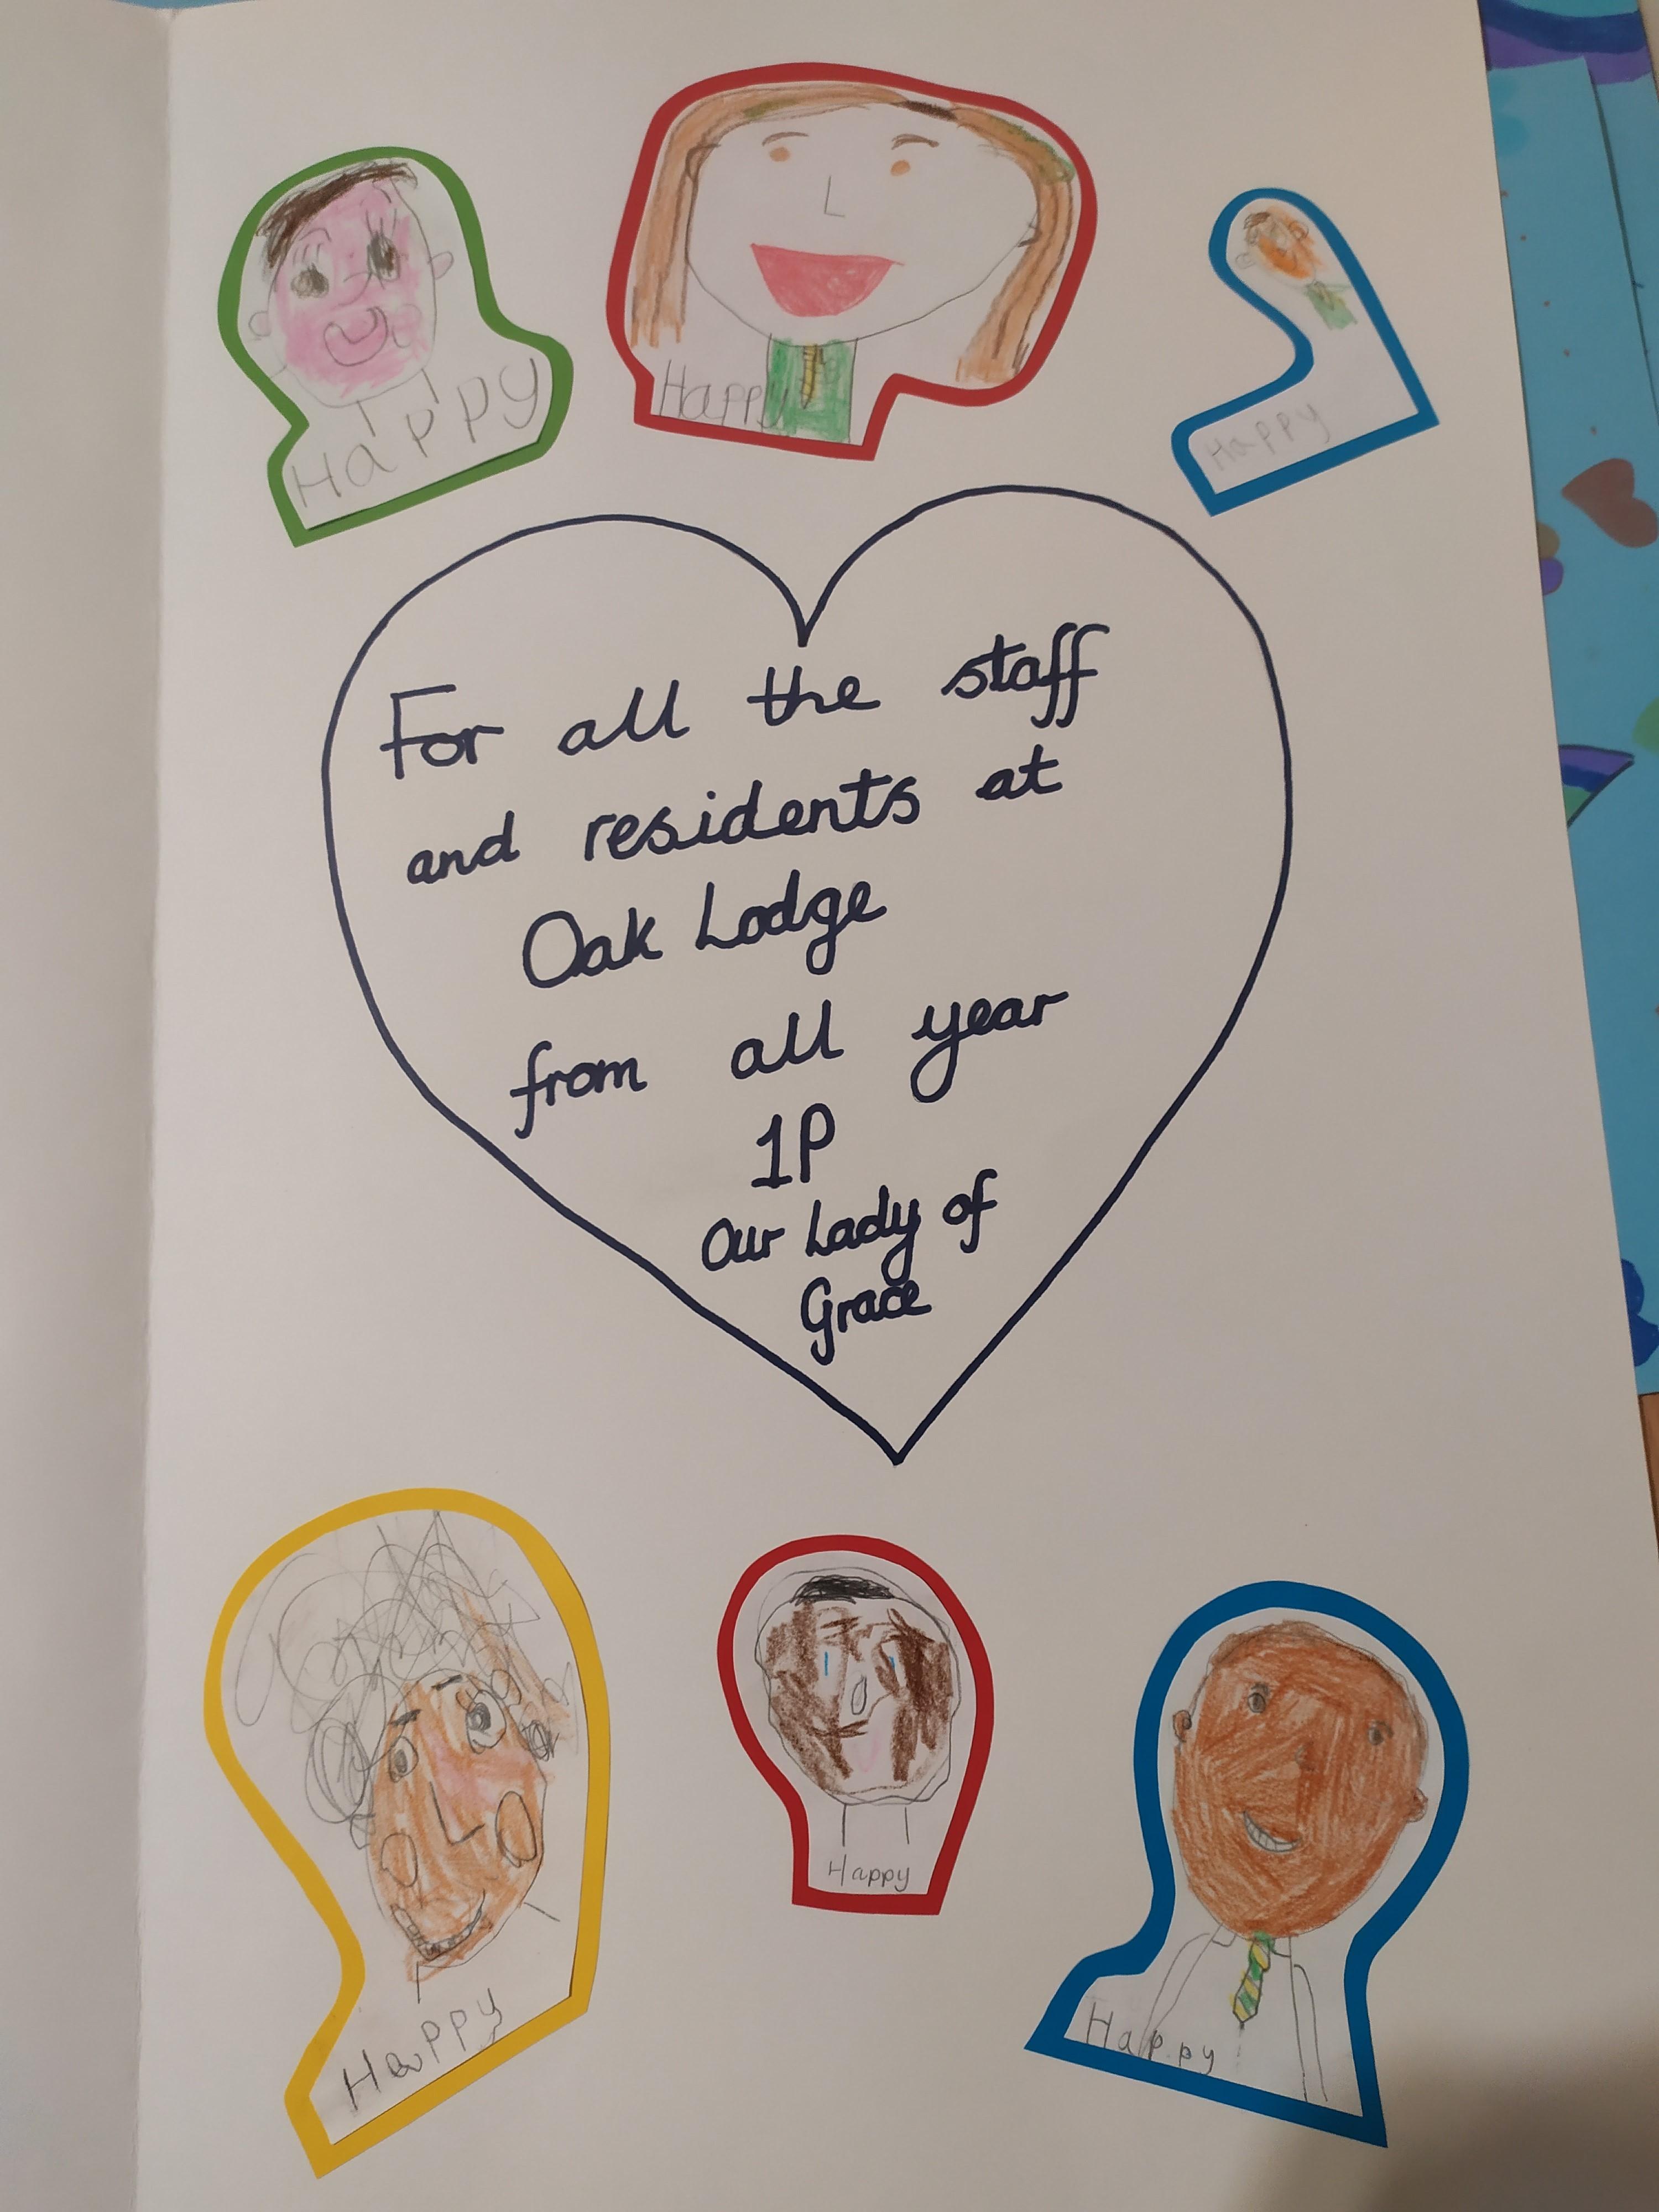 Happy
Happy
Happy
For all the staff
and residents at
Oak Lodge
from all year
1P
Our Lady of
Grace
Happy
Happy
Happy